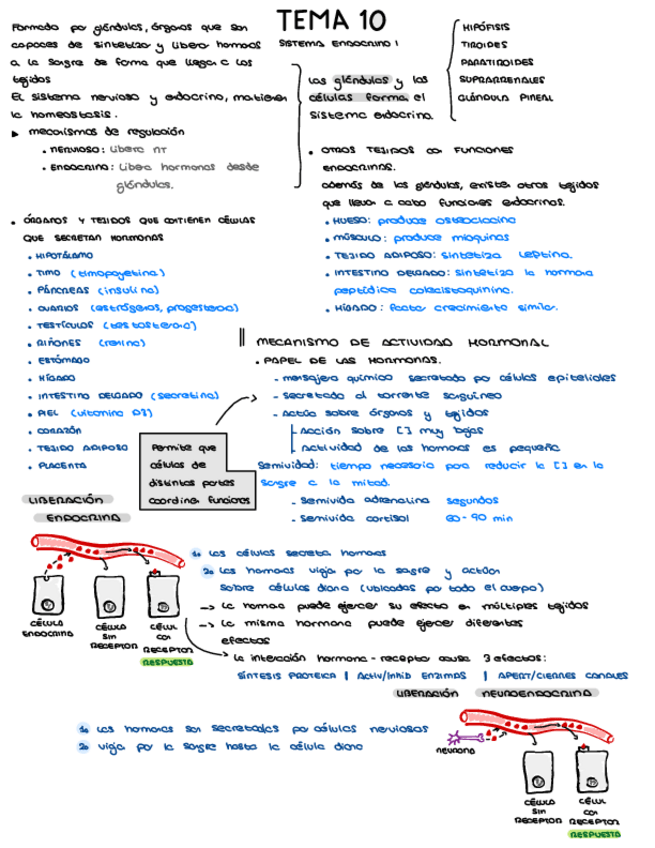 TEMA 10
SISTEMA ENDOCRINO I
Formado por glándulas, órganos que son
capaces de sintetizar y liberar hormonas
a la sangre de forma que llegan a los
tejidos
El sistema nervioso y endocrino, mantienen
la homeostasis.
▶ mecanismos de regulación
• NERVIOSO: libera NT
• ENDOCRINO: libera hormonas desde
glándulas.
Las glándulas y las
células forman el
sistema endocrino.
HIPÓFISIS
TIROIDES
PARATIROIDES
SUPRARRENALES
GLÁNDULA PINEAL
• OTROS TEJIDOS CON FUNCIONES
ENDOCRINAS.
además de las glándulas, existen otros tejidos
que llevan a cabo funciones endocrinas.
• HUESO: produce osteocalcina
• MÚSCULO: produce mioquinas
• TEJIDO ADIPOSO: sintetiza leptina.
• INTESTINO DELGADO: sintetiza la hormona
peptídica colecistoquinina.
• HÍGADO: factor crecimiento similar.
• ÓRGANOS Y TEJIDOS QUE CONTIENEN CÉLULAS
QUE SECRETAN HORMONAS
• HIPOTÁLAMO
• TIMO (timopoyetina)
• PÁNCREAS (insulina)
• OVARIOS (estrógenos, progesterona)
• TESTÍCULOS (testosterona)
• RIÑONES (renina)
• ESTÓMAGO
• HÍGADO
• INTESTINO DELGADO (secretina)
• PIEL (vitamina D3)
• CORAZÓN
• TEJIDO ADIPOSO
• PLACENTA
|| MECANISMO DE ACTIVIDAD HORMONAL
• PAPEL DE LAS HORMONAS.
- mensajero químico secretado por células epiteliales
- secretado al torrente sanguíneo
- Actúa sobre órganos y tejidos
Acción sobre [ ] muy bajas
Actividad de las hormonas es pequeña
Permite que
células de
distintas partes
coordinen funciones
Semividad: tiempo necesario para reducir la [ ] en la
sangre a la mitad.
- Semivida adrenalina segundos
- Semivida cortisol 60-90 min
LIBERACIÓN
ENDOCRINA
1o Las células secretan hormonas
2o Las hormonas viajan por la sangre y actúan
sobre células diana (ubicadas por todo el cuerpo)
→ La hormona puede ejercer su efecto en múltiples tejidos
→ La misma hormona puede ejercer diferentes
efectos
→ La interacción hormona-receptor causa 3 efectos:
SÍNTESIS PROTEICA | Activ/Inhib ENZIMAS | APERT/CIERRES CANALES
CÉLULA
ENDOCRINA
CÉLULA
SIN
RECEPTOR
CÉLUL
CON
RECEPTOR
RESPUESTA
LIBERACIÓN NEUROENDOCRINA
1o Las hormonas son secretadas por células nerviosas
2o viaja por la sangre hasta la célula diana
NEURONA
CÉLULA
SIN
RECEPTOR
CÉLUL
CON
RECEPTOR
RESPUESTA